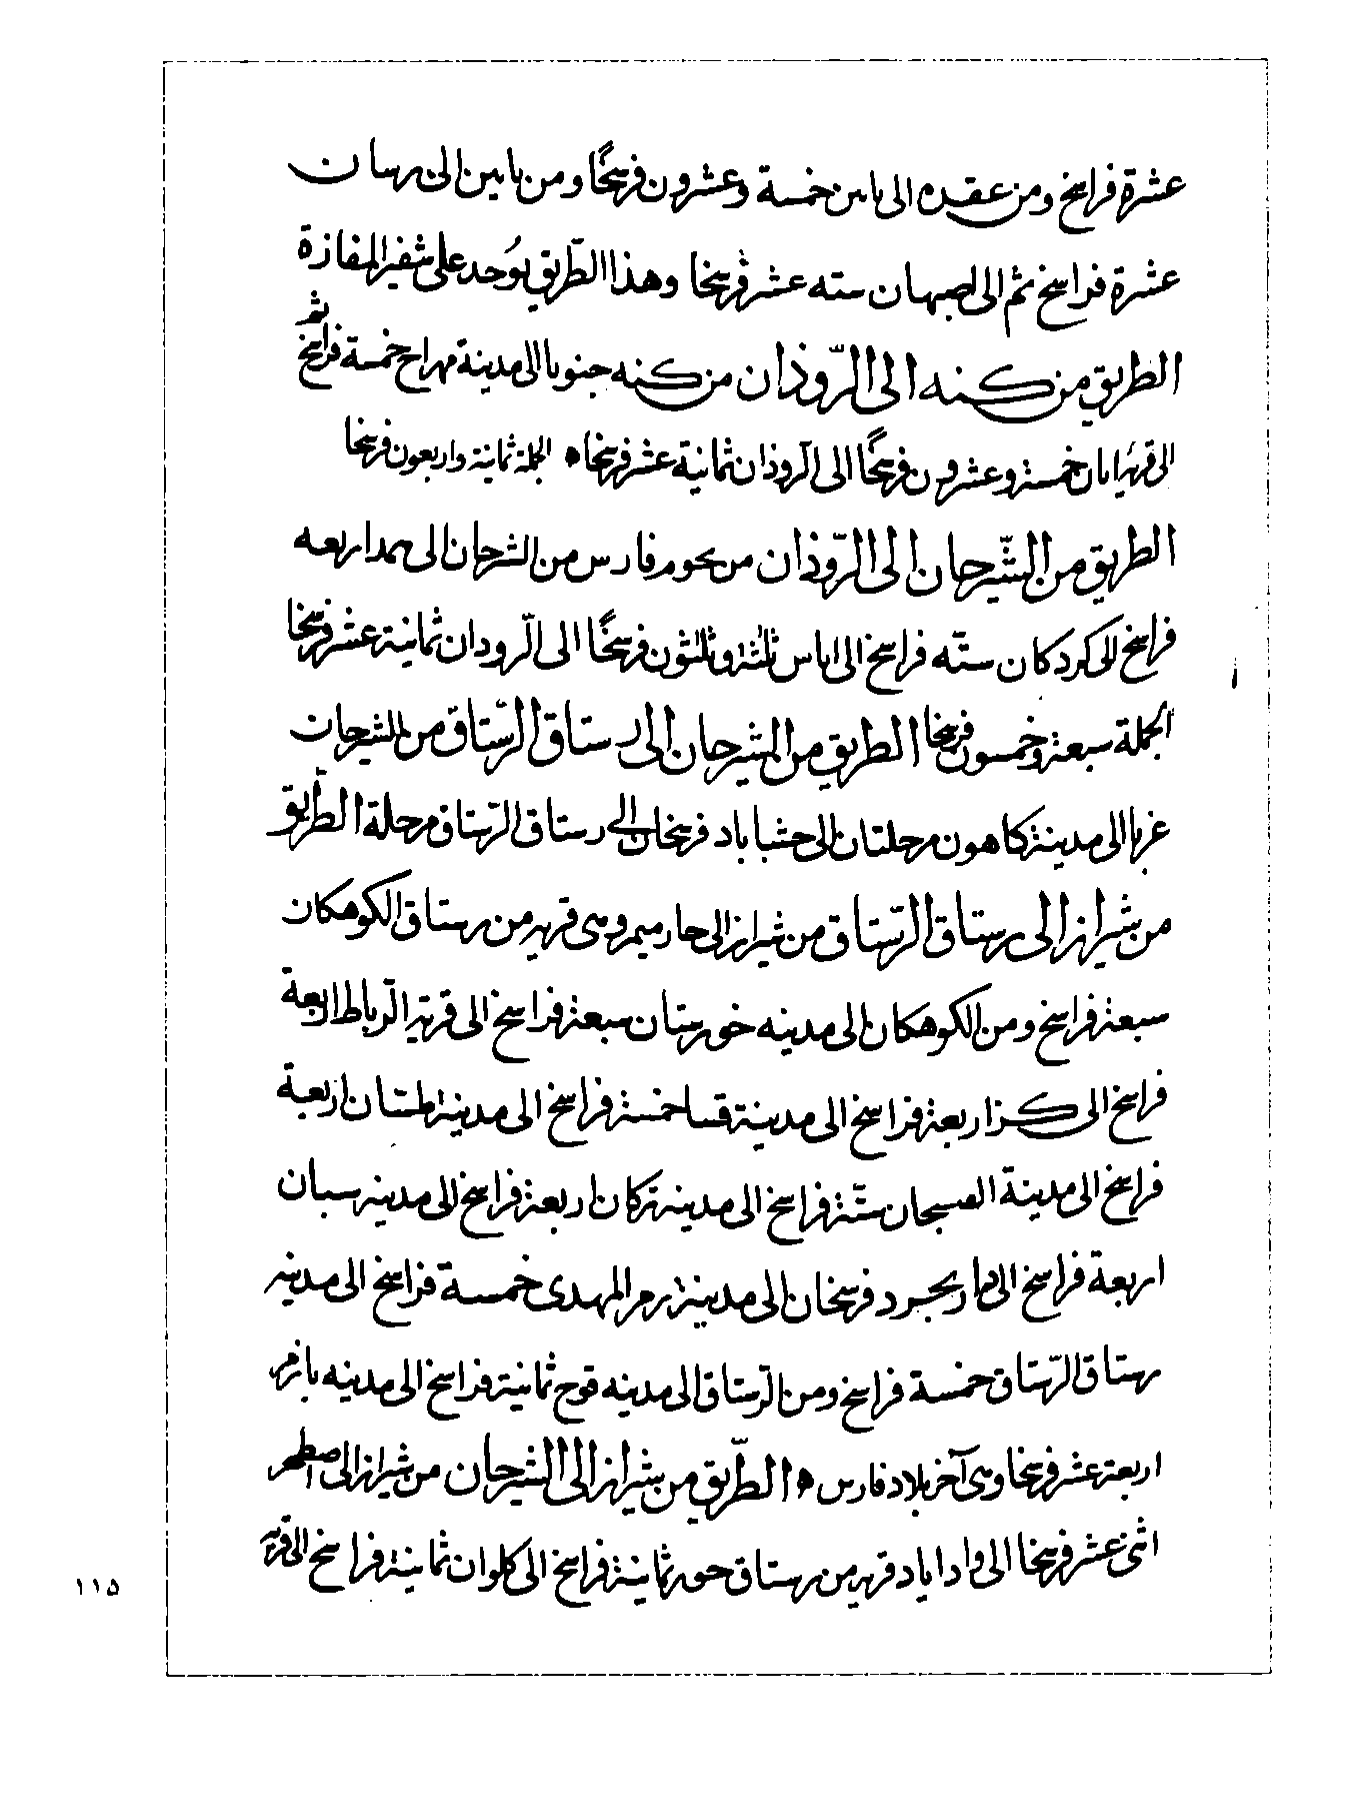 عشرة فراسخ ومن عقده الى ىاىىن خمسة وعشرون فرسخًا ومن ىاىىن الى رسىان
عشرة فراسخ ثم الى اصبهان سته عشر فرسخا وهذا الطّريق يُوحد على شفير المفازة
الطريق من كثه الى الرّوذان من كثه جنوبا الى مدينة مهراح خمسة فراسخ ثم
الى قرية ابان خمسة وعشرون فرسخًا الى الروذان ثمانية عشر فرسخا ه الجملة ثمانية واربعون فرسخا
الطريق من الشّيرجان الى الرّوذان من نحوم فارس من الشرجان الى ىىمد اربعه
فراسخ الى كردكان ستّه فراسخ الى اناس ثلثة وثلثون فرسخًا الى الرّودان ثمانية عشر فرسخا
الجملة سبعة وخمسون فرسخا الطريق من الشيرجان الى رستاق الرّستاق من الشيرجان
غربا الى مدينة كاهون مرحلتان الى حشناباد فرسخان الى رستاق الرّستاق مرحلة الطّريق
من شيراز الى رستاق الرّستاق من شيراز الى حارميم وهى قريه من رستاق الكوهكان
سبعة فراسخ ومن الكوهكان الى مدينه خورستان سبعة فراسخ الى قرية الرّباط اربعة
فراسخ الى كرم اربعة فراسخ الى مدينة فسا خمسة فراسخ الى مدينة طمستان اربعة
فراسخ الى مدينة الفسجان ستّة فراسخ الى مدينة تركان اربعة فراسخ الى مدينه سبان
اربعة فراسخ الى دارابجرد فرسخان الى مدينة رم المهدى خمسة فراسخ الى مدينه
رستاق الرّستاق خمسة فراسخ ومن الرّستاق الى مدينه فوج ثمانية فراسخ الى مدينه بارم
اربعة عشر فرسخا وهى آخر بلاد فارس ه الطّريق من شيراز الى الشيرجان من شيراز الى اصطخر
اثنى عشر فرسخا الى واداباد قريه من رستاق حور ثمانية فراسخ الى كلوان ثمانية فراسخ الى قريه
۱۱۵